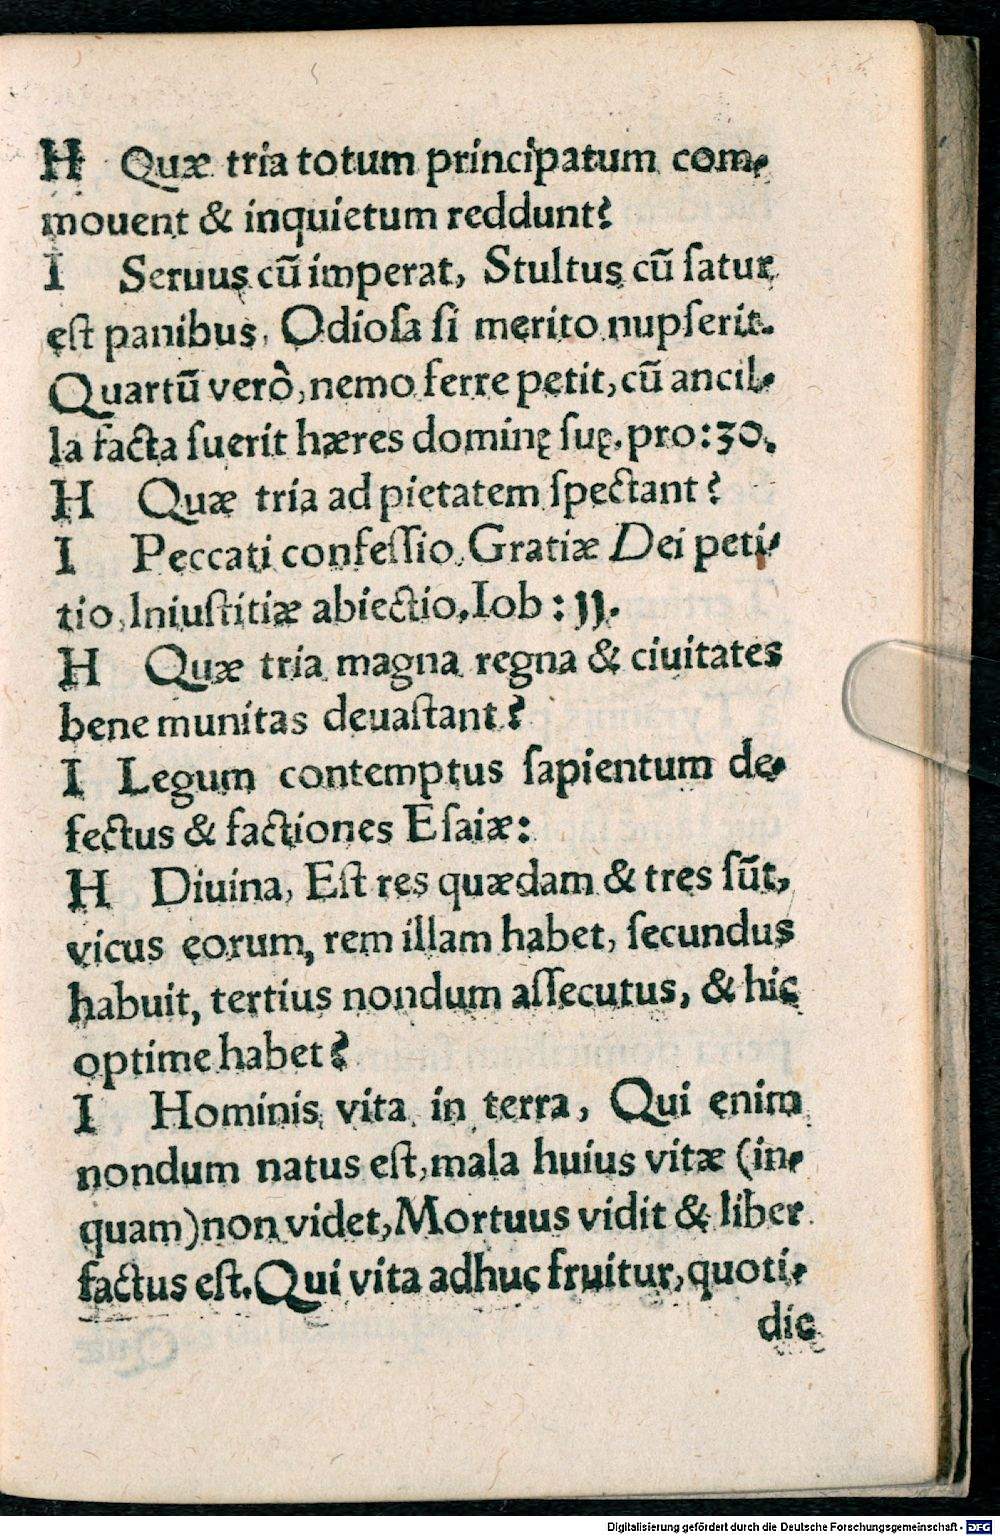 H Quæ tria totum principatum com-
mouent & inquietum reddunt?
I Seruus cū imperat, Stultus cū ſatur
eſt panibus, Odioſa ſi merito nupſerit.
Quartū verò, nemo ferre petit, cū ancil-
la facta fuerit hæres dominę ſuę. pro: 30.
H Quæ tria ad pietatem ſpectant?
I Peccati confeſſio, Gratiæ Dei peti-
tio, Iniuſtitiæ abiectio. Iob: 11.
H Quæ tria magna regna & ciuitates
bene munitas deuaſtant?
I Legum contemptus ſapientum de-
fectus & factiones Eſaiæ:
H Diuina, Eſt res quædam & tres ſūt,
vicus eorum, rem illam habet, ſecundus
habuit, tertius nondum aſſecutus, & hic
optime habet?
I Hominis vita in terra, Qui enim
nondum natus eſt, mala huius vitæ (in-
quam) non videt, Mortuus vidit & liber
factus eſt. Qui vita adhuc fruitur, quoti-
die
Digitalisierung gefördert durch die Deutsche Forschungsgemeinschaft - DFG